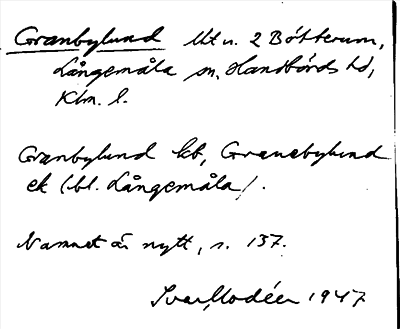 Granbylund Utn. 2 Bötterum,
Långemåla sn, Handbörds hd,
Klm. l.
Granbylund kb, Granebylund
ek (bl. Långemåla).
Namnet är nytt, s. 137.
Ivar Modéer 1947